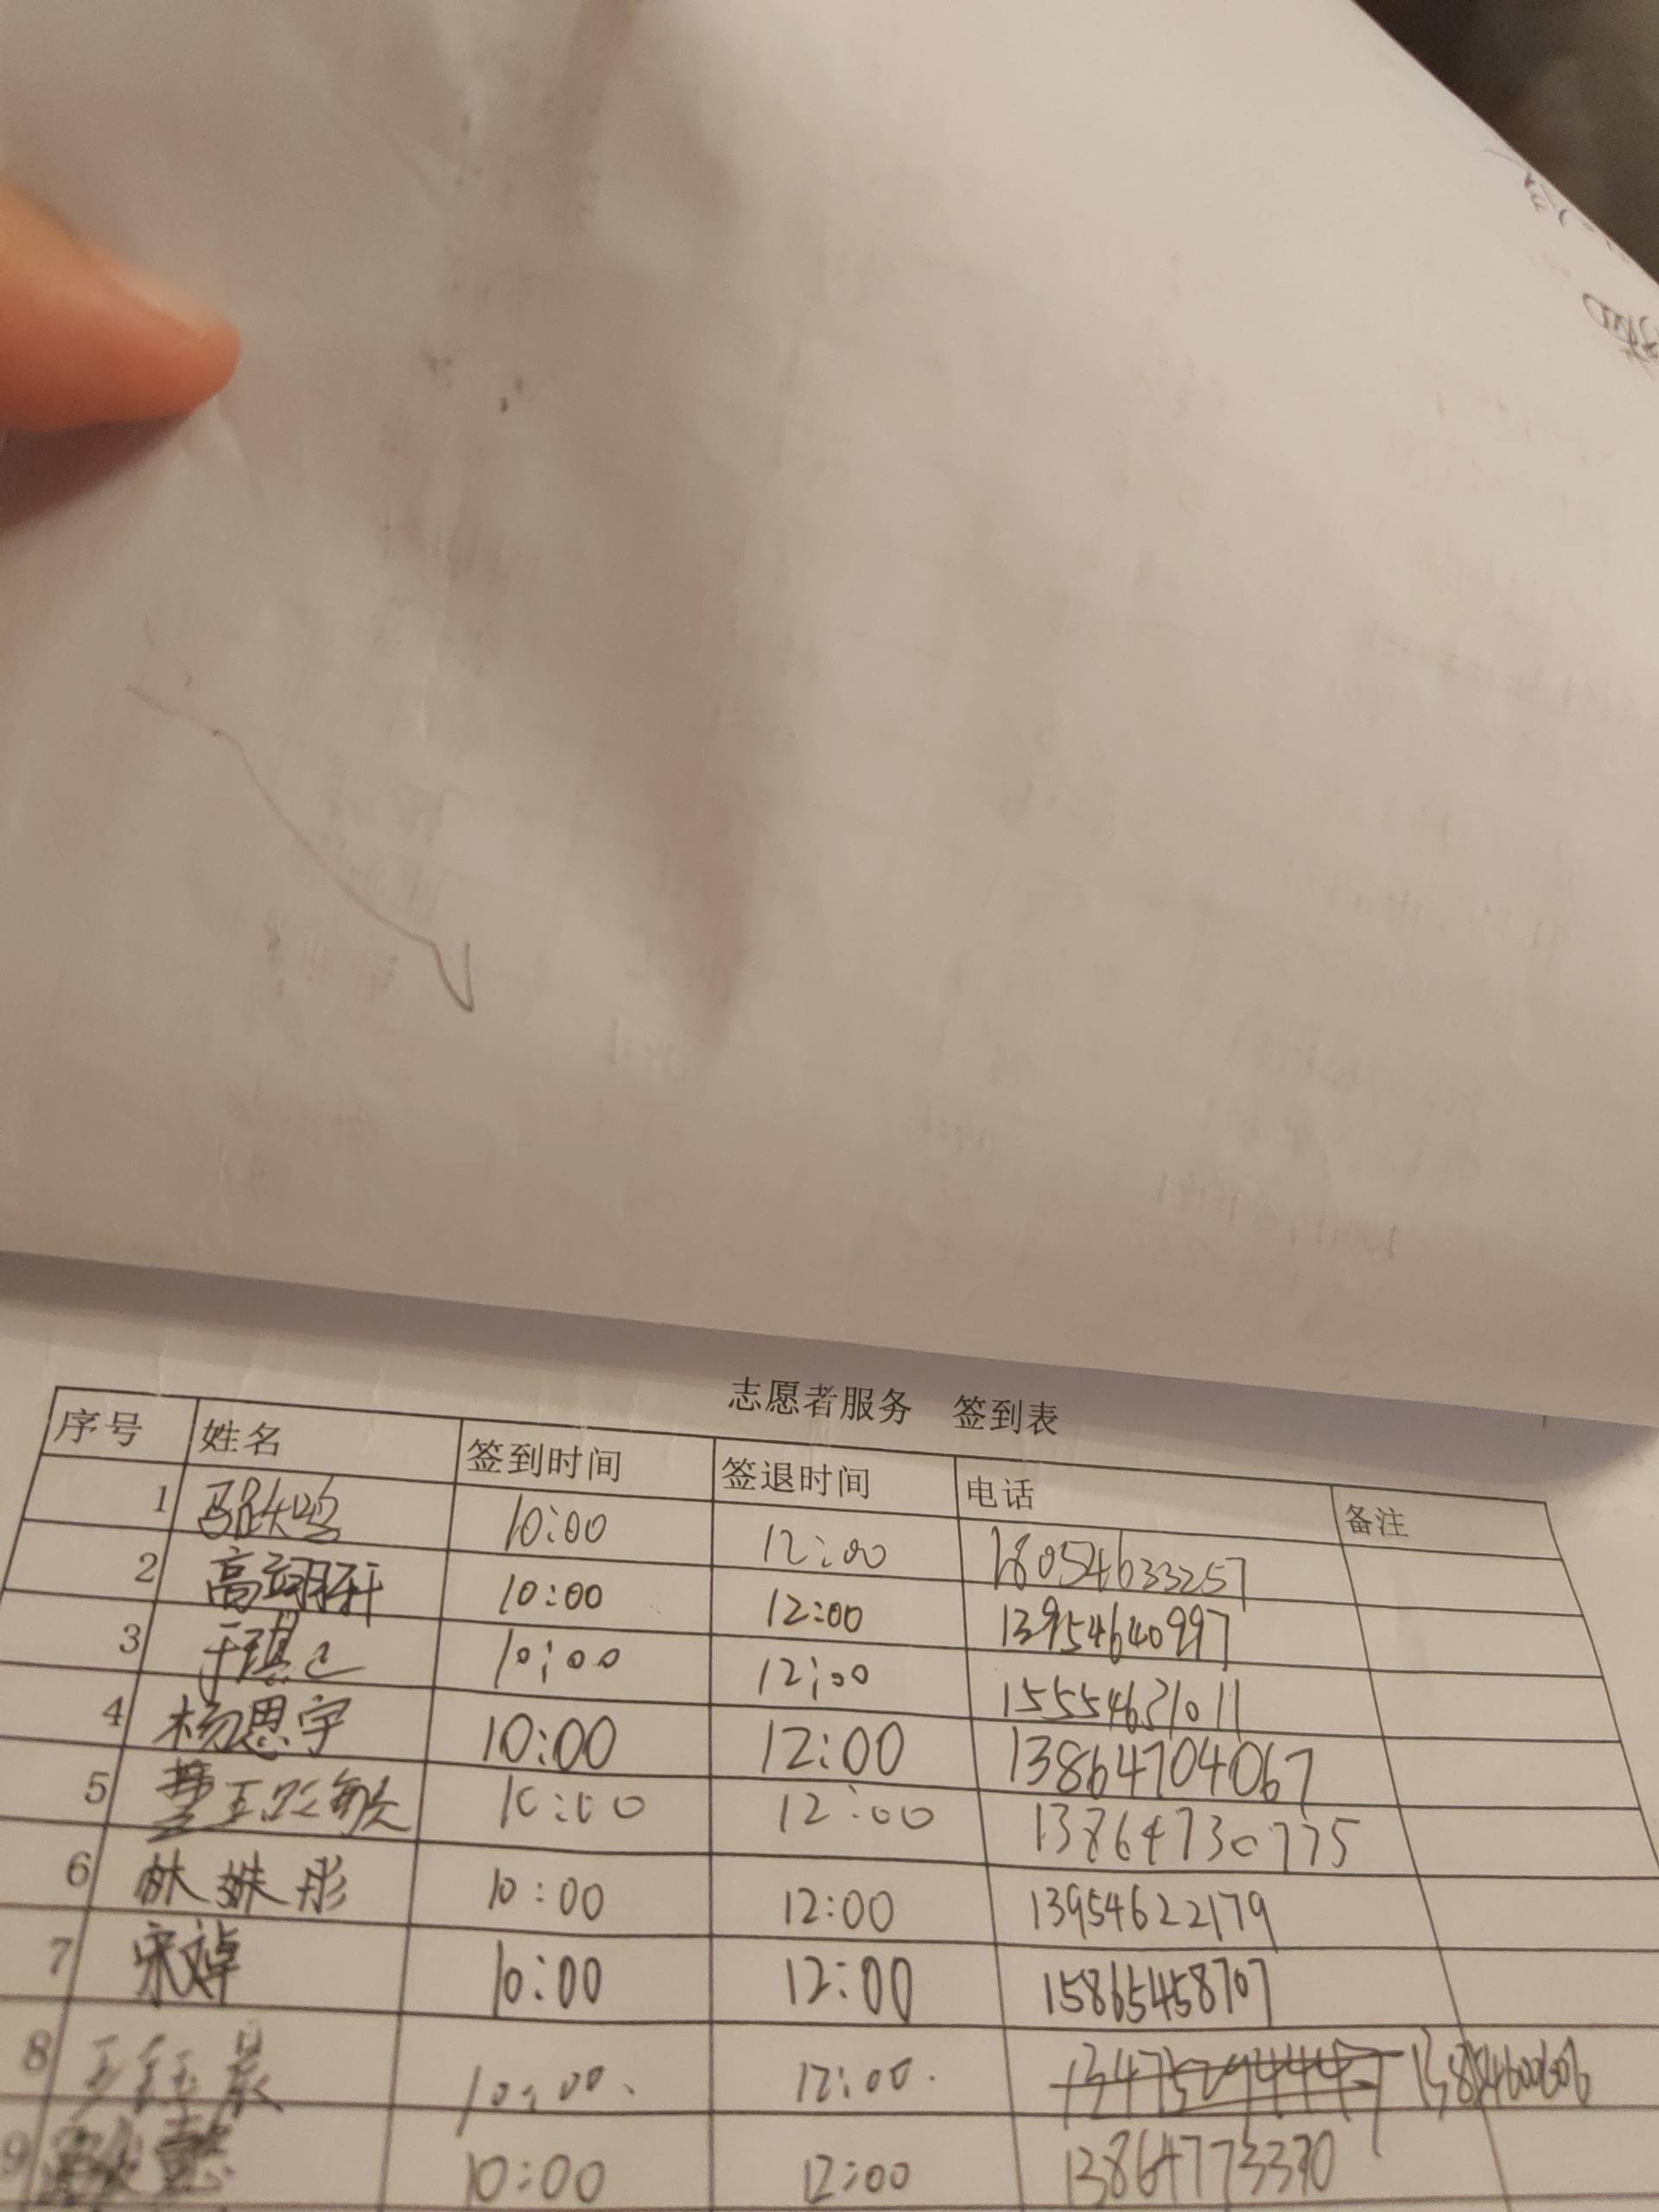 志愿者服务 签到表
序号 姓名 签到时间 签退时间 电话 备注
1 10:00 12:00 18054633257
2 高翊轩 10:00 12:00 13954640997
3 于琪 10:00 12:00 15554631011
4 杨思宇 10:00 12:00 13864704067
5 10:00 12:00 13864730775
6 林姝彤 10:00 12:00 13954622179
7 宋焯 10:00 12:00 15865458707
8 10:00 12:00
9 10:00 12:00 13864773370